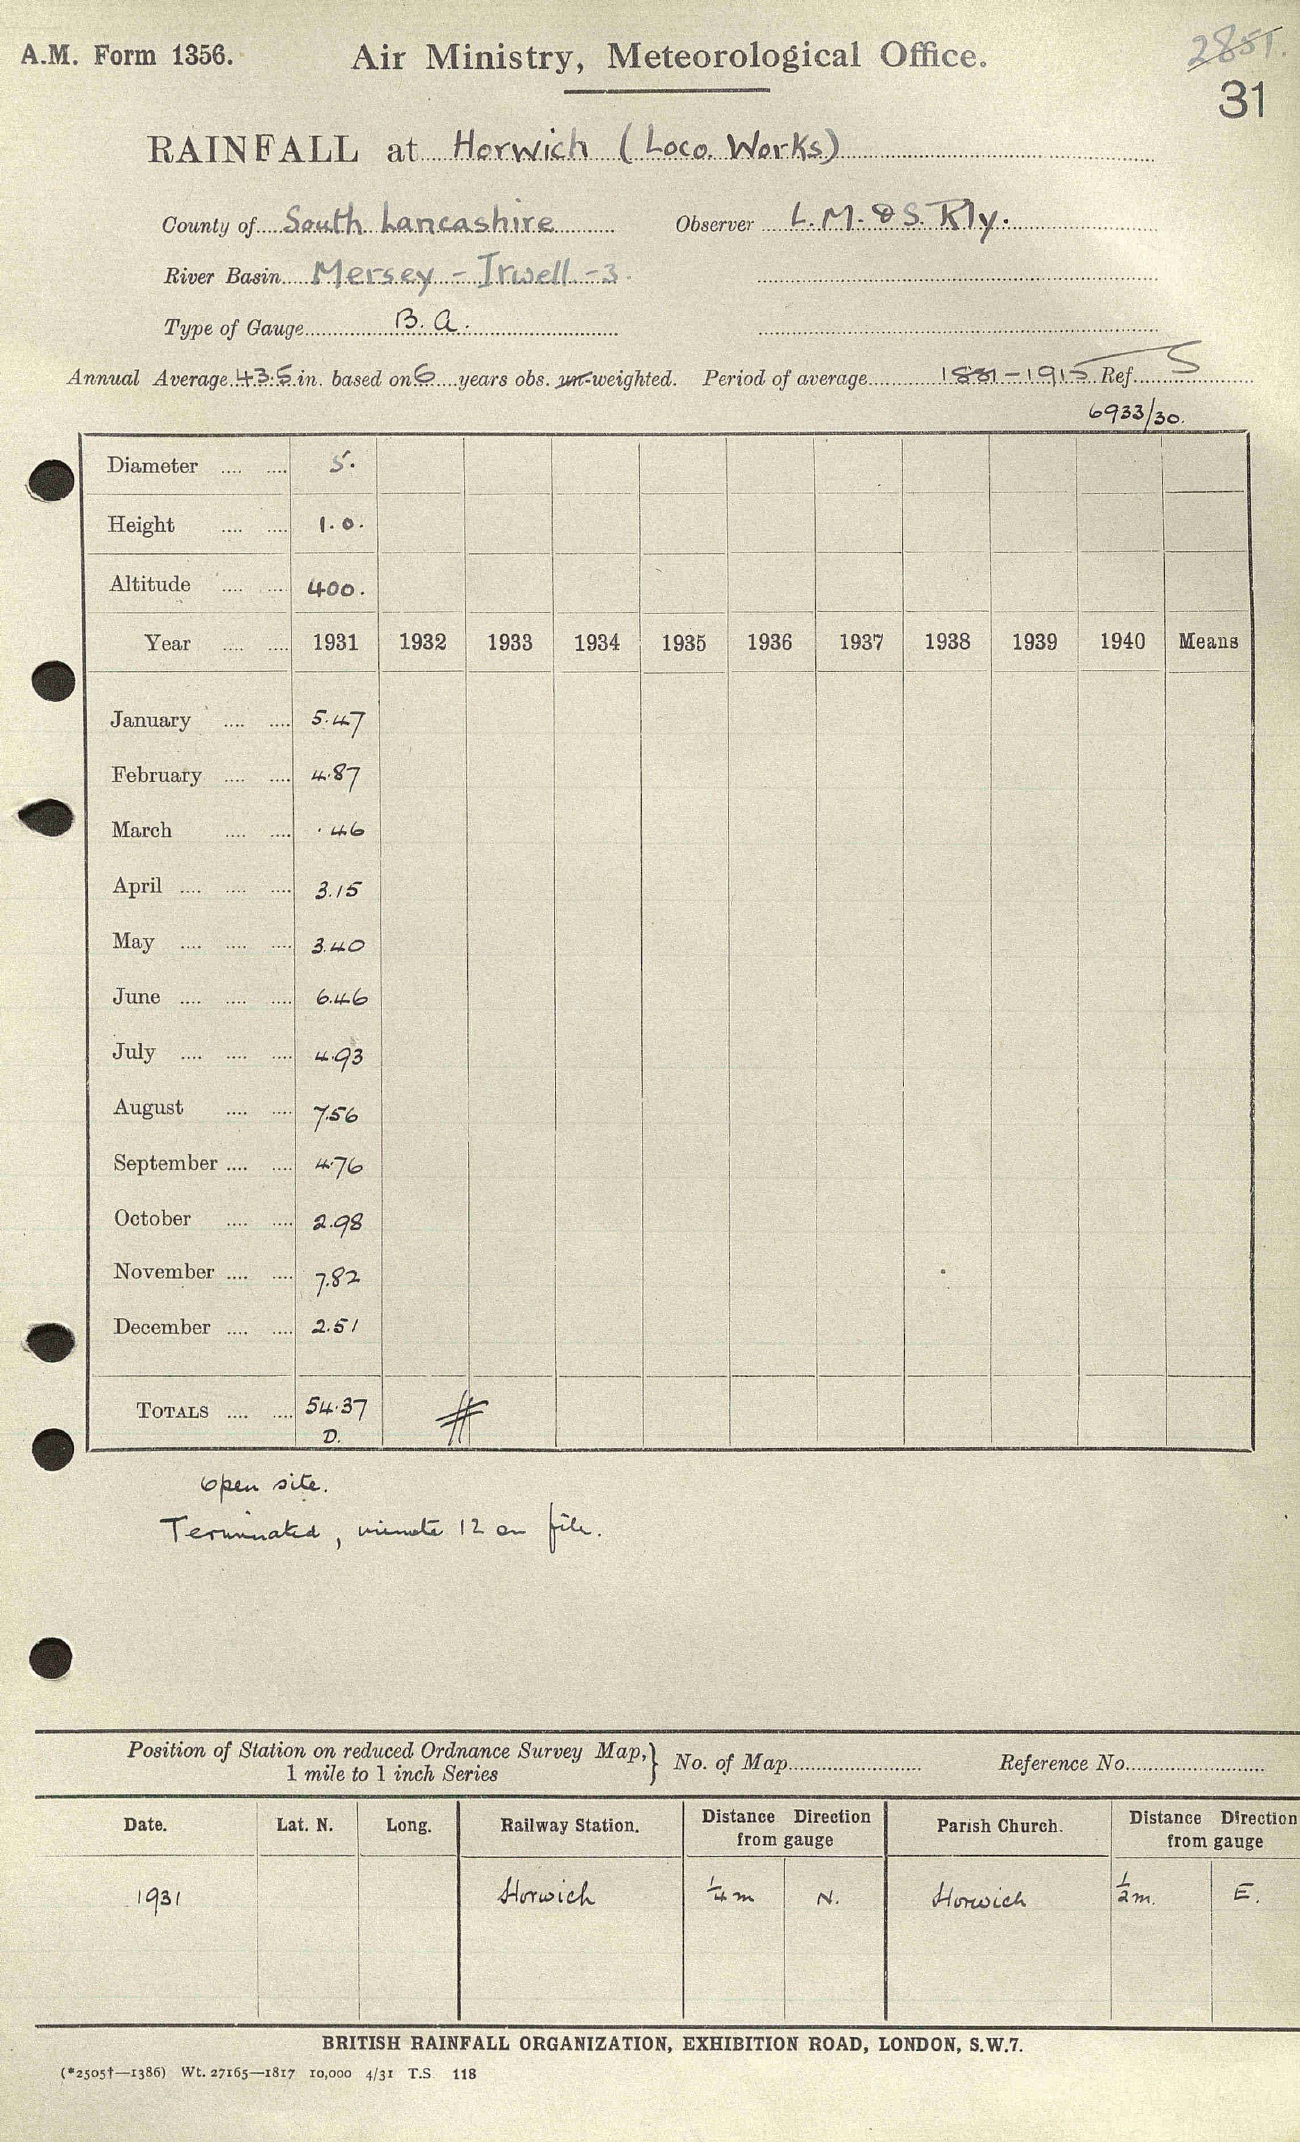 A.M. Form 1356.
Air Ministry, Meteorological Office.
2851.
31
RAINFALL at Horwich (Loco. Works)
County of South Lancashire Observer L.M. & S. Rly.
River Basin Mersey - Irwell - 3.
Type of Gauge B.A.
Annual Average 43.5 in. based on 6 years obs. un-weighted. Period of average 1881-1915 Ref. S
6933/30.
Diameter .... .... 5.
Height .... .... 1.0.
Altitude .... .... 400.
Year .... .... 1931 1932 1933 1934 1935 1936 1937 1938 1939 1940 Means
January .... .... 5.47
February .... .... 4.87
March .... .... .46
April .... .... .... 3.15
May .... .... .... 3.40
June .... .... .... 6.46
July .... .... .... 4.93
August .... .... 7.56
September .... .... 4.76
October .... .... 2.98
November .... .... 7.82
December .... .... 2.51
TOTALS .... .... 54.37
D.
Open site.
Terminated, minute 12 on file.
Position of Station on reduced Ordnance Survey Map, } No. of Map Reference No.
1 mile to 1 inch Series
Date. Lat. N. Long. Railway Station. Distance Direction Parish Church. Distance Direction
from gauge from gauge
1931 Horwich 1/4 m N. Horwich 1/2 m. E.
BRITISH RAINFALL ORGANIZATION, EXHIBITION ROAD, LONDON, S.W.7.
(*2505†—1386) Wt. 27165—1817 10,000 4/31 T.S 118